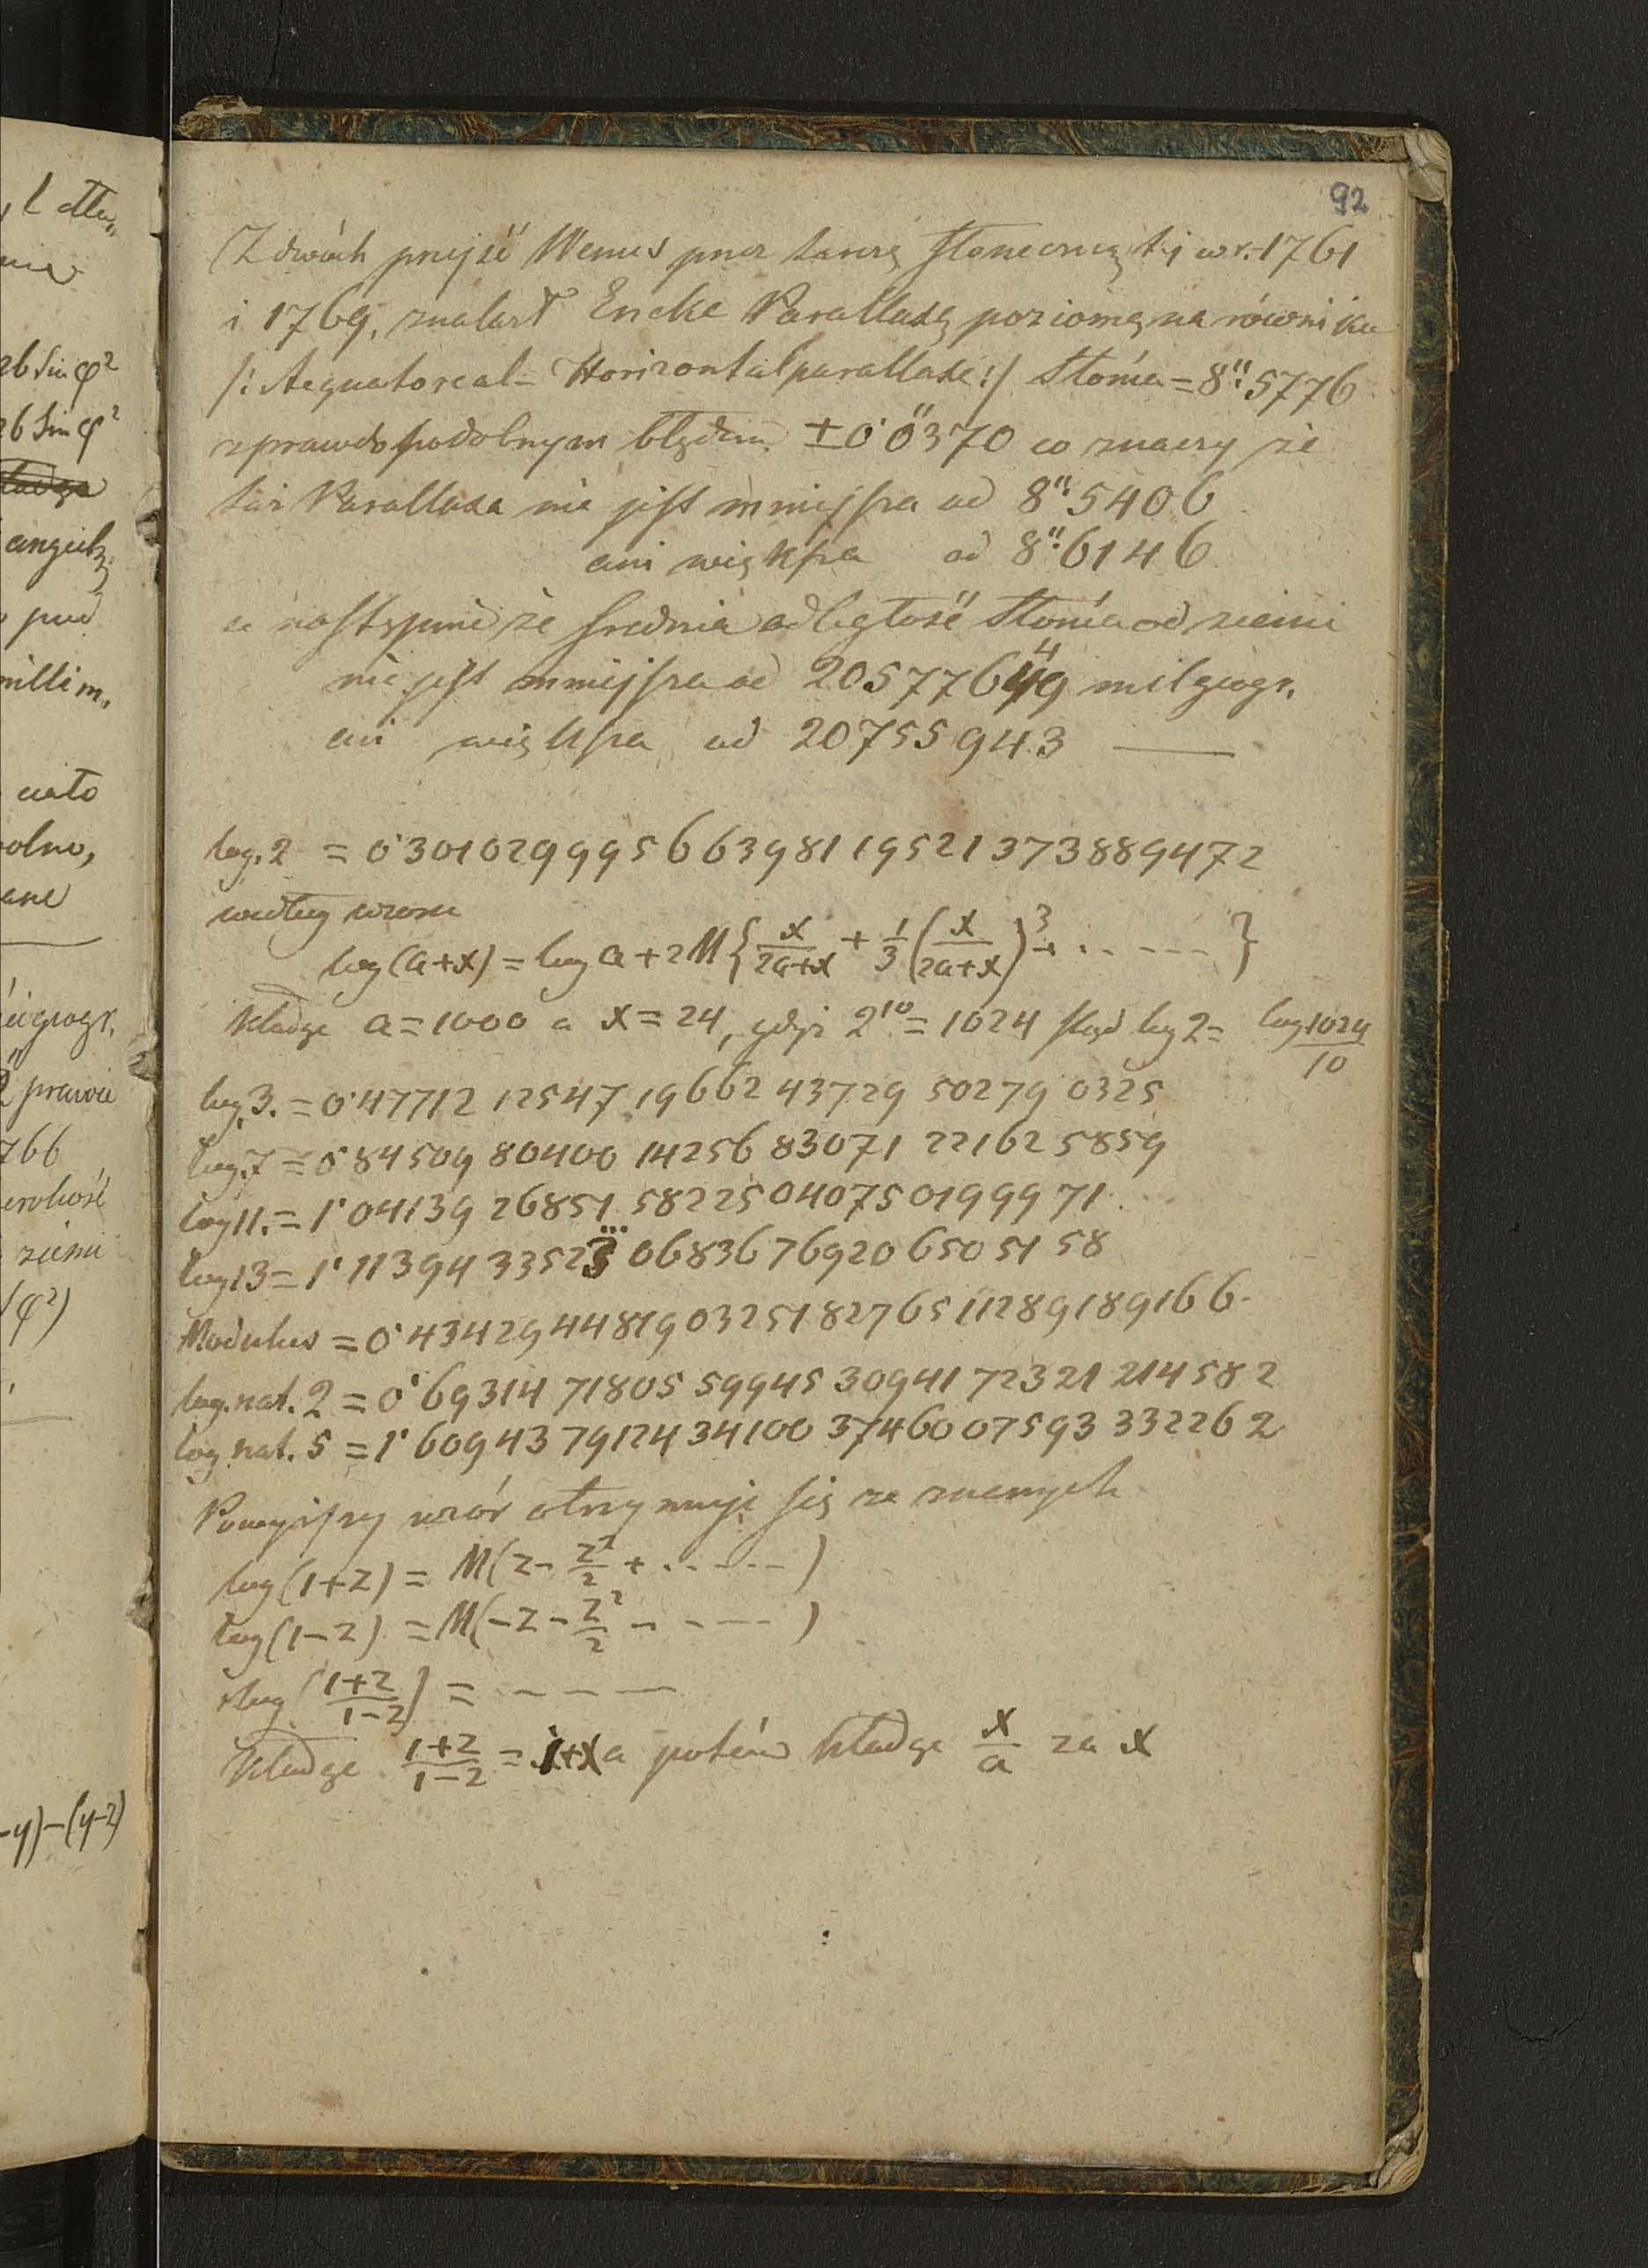 92
Z dwóch przejść Wenus przez tarczę słoneczną t.j w r. 1761
i 1769, znalazł Encke Parallaxę poziomą na równiku
/: Aequatoreal- Horizontalparallaxe :/ Słońca = 8".5776
z prawdopodobnym błędem ± 0"0370 co znaczy że
taż Parallaxa nie jest mniejsza od 8".5406
ani większa od 8".6146
a następnie że średnia odległość Słońca od ziemi
nie jest mniejsza od 20577649 mil geogr.
4
ani większa od 20755943 ——
log. 2 = 0·301029995663981195213738894 72
według wzoru
log (a+x) = log a + 2M { x/2a+x + 1/3 (x/2a+x)³ + . . - - - - }
Kładąc a = 1000 a x = 24, gdyż 2¹⁰ = 1024 skąd log 2 = log 1024/10
log 3. = 0·47712 12547 19662 43729 50279 0325
log. 7 = 0·84509 80400 14256 83071 22162 5859
log 11. = 1·04139 26851 58225 04075 01999 71.
log 13 = 1·11394 33523 06836 76920 65051 58
Modulus = 0·43429 44819 03251 82765 11289 189166
log. nat. 2 = 0·69314 71805 59945 30941 72321 214582
log nat. 5 = 1·60943 79124 34100 37460 07593 332262
Powyższy wzór otrzymuje się ze znanych
log (1+z) = M(z - z²/2 + . . - - - )
log (1-z) = M(-z - z²/2 - - - - )
log (1+z/1-z) = - - - -
Kładąc 1+z/1-z = 1+x a potém kładąc x/a za x
, l
2b Sin φ²
2b Sin φ²
angiels.
millim.
ciało
prawie
766
ziemi
(φ²)
-y)-(y-z)